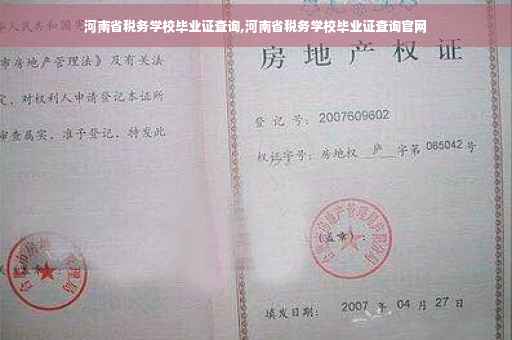 河南省税务学校毕业证查询,河南省税务学校毕业证查询官网
人民共和国宪
市房地产管理法》及有关法
定，对权利人申请登记本证所
审查属实，准予登记，特发此
房地产权证
登记号：2007609602
权证字号：房地权 庐 字第 065042 号
(盖章)：
填发日期：2007 年 04 月 27 日